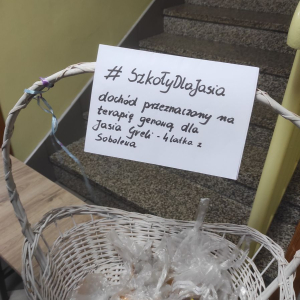 # SzkołyDlaJasia
dochód przeznaczony na
terapię genową dla
Jasia Greli - 4 latka z
Sobolewa